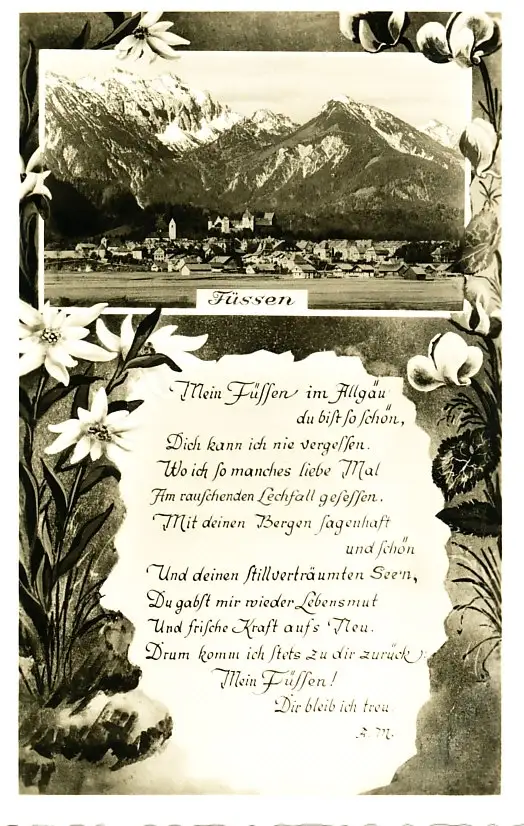 Füssen
Mein Füſſen im Allgäu
du biſt ſo ſchön,
Dich kann ich nie vergeſſen.
Wo ich ſo manches liebe Mal
Am rauſchenden Lechfall geſeſſen.
Mit deinen Bergen ſagenhaft
und ſchön
Und deinen ſtillverträumten See'n,
Du gabſt mir wieder Lebensmut
Und friſche Kraft auf's Neu.
Drum komm ich ſtets zu dir zurück:
Mein Füſſen!
Dir bleib ich treu.
A. M.